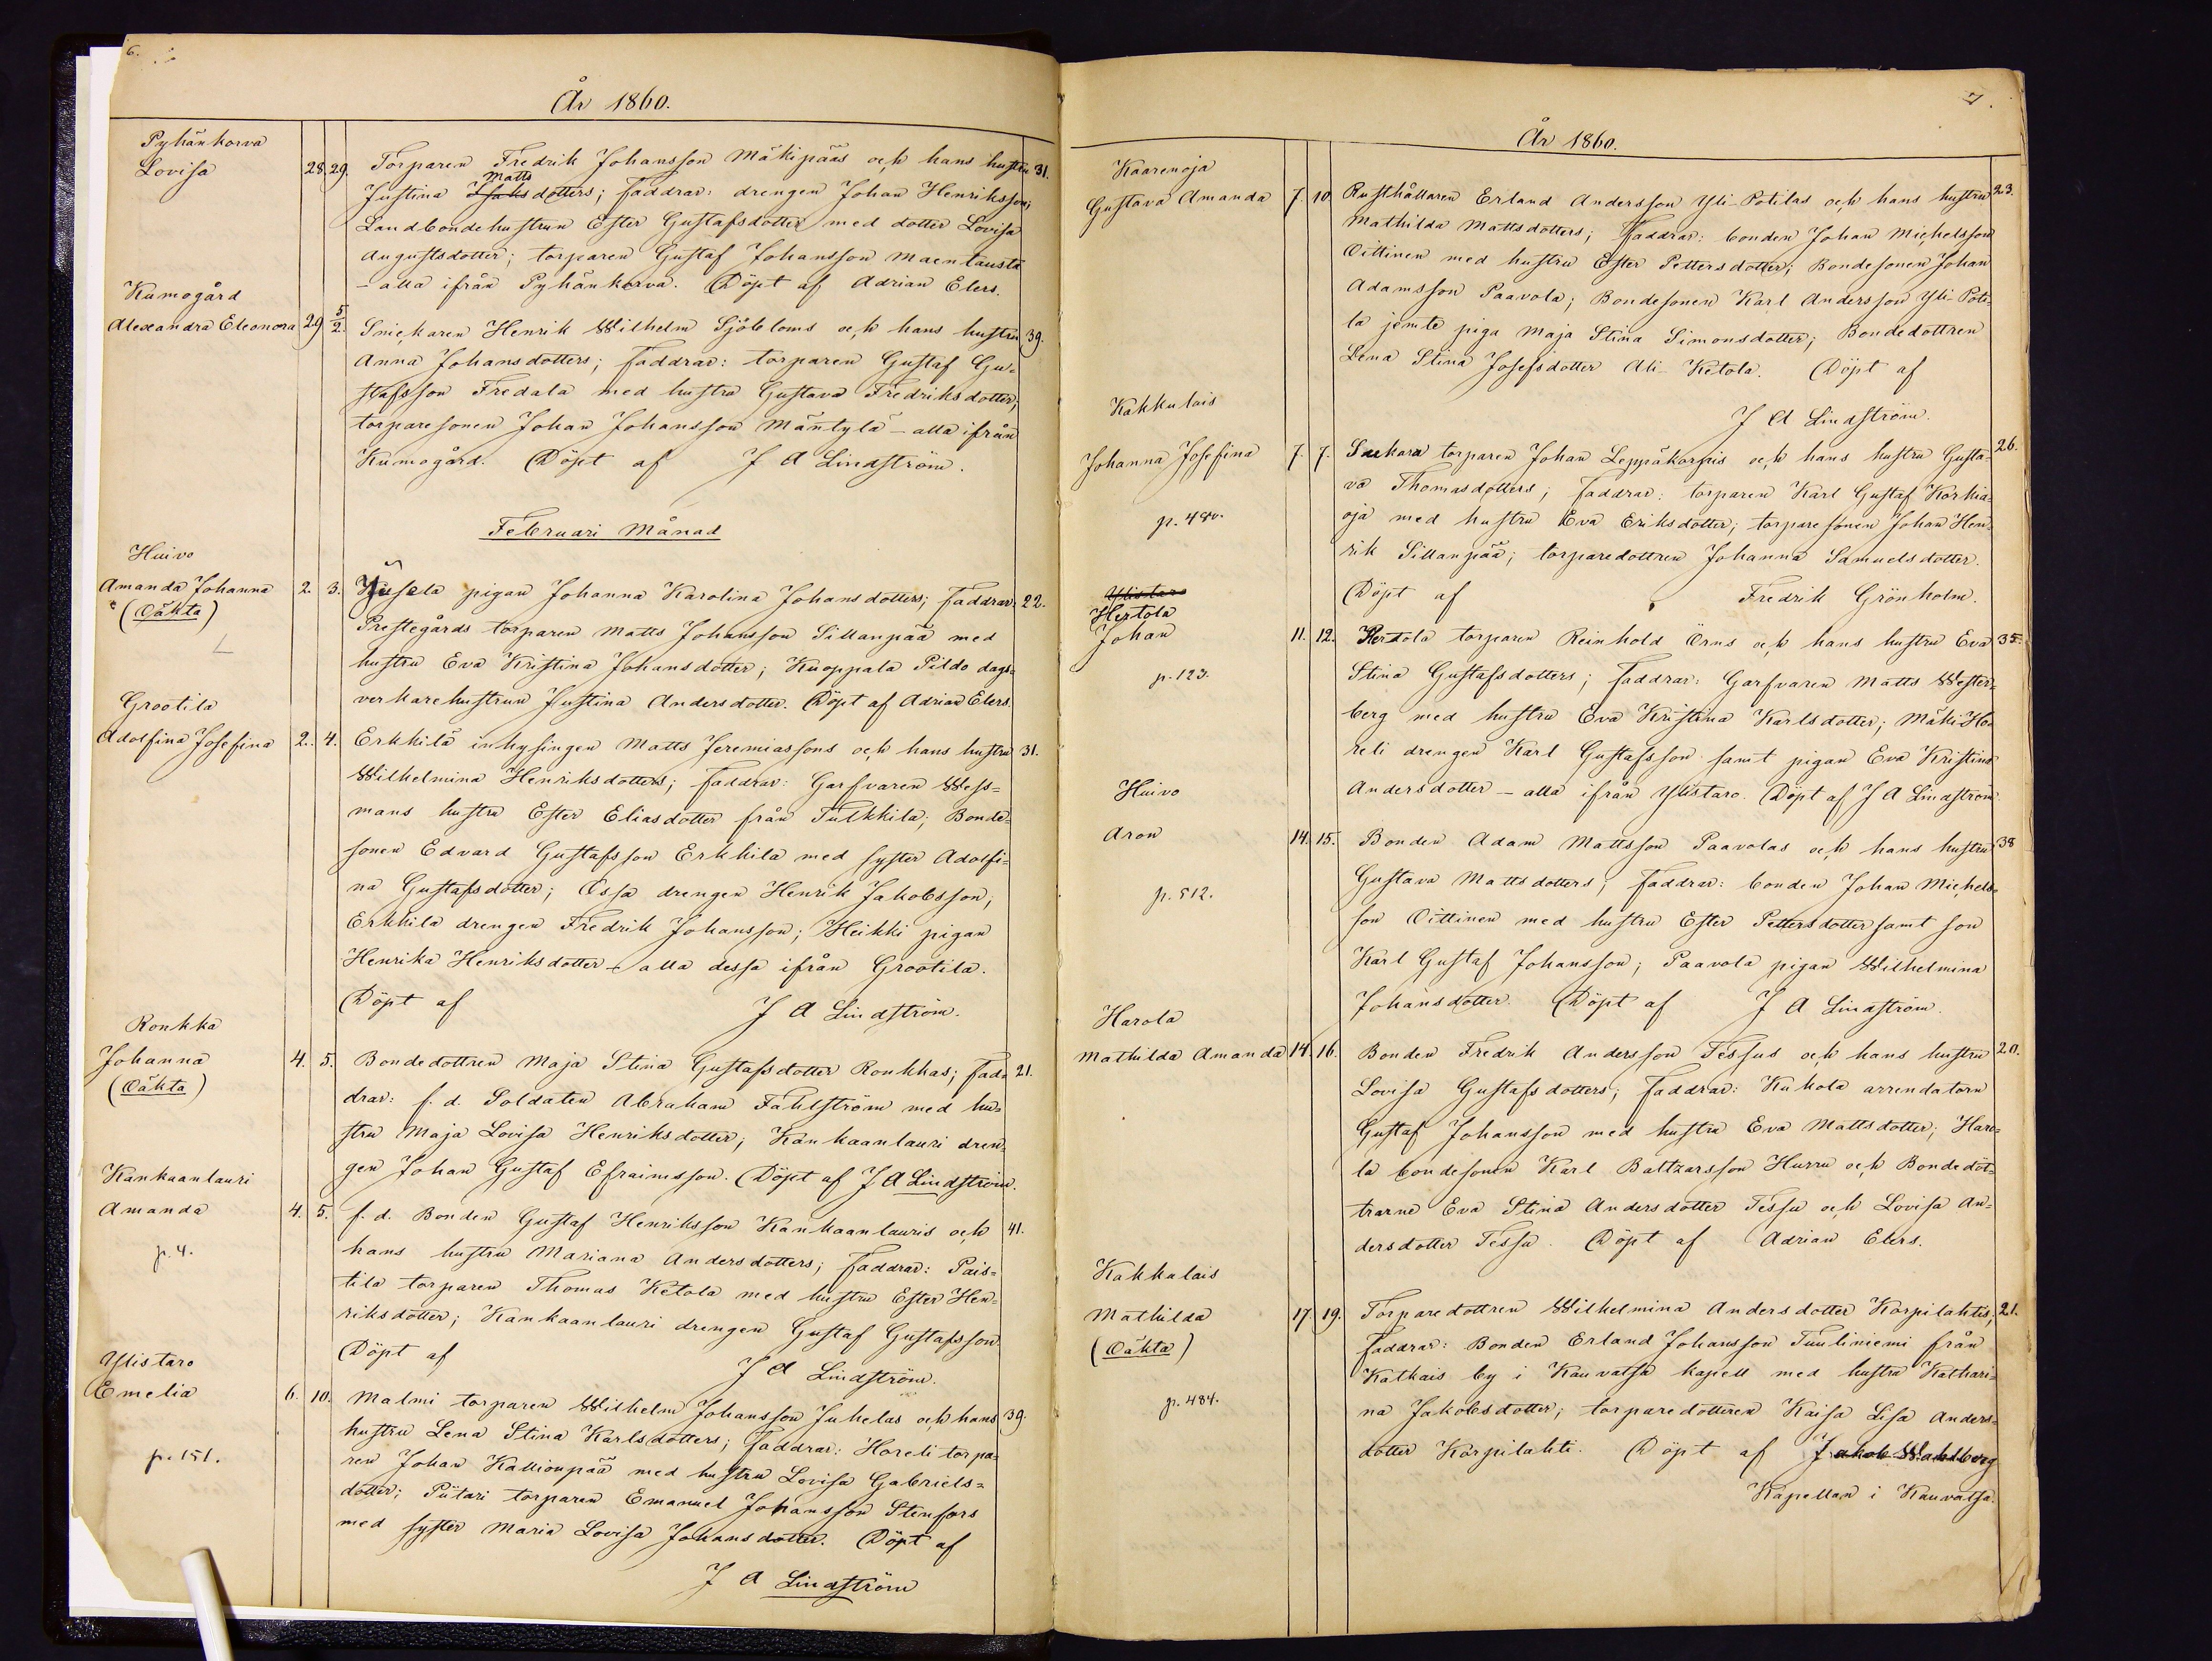 6.
År 1860.
Pyhänkorva
Lovisa 28. 29. Torparen Fredrik Johansson Mäkipääs och hans hustru 31.
Matts
Justina Isaksdotters; faddrar: drengen Johan Henriksson;
Landbondehustrun Ester Gustafsdotter med dotter Lovisa
Augustsdotter; torparen Gustaf Johansson Maentausta
– alla ifrån Pyhänkorva. Döpt af Adrian Elers.
Kumogård
Alexandra Eleonora 29 5/2. Snickaren Henrik Wilhelm Sjöbloms och hans hustru 39.
Anna Johansdotters; faddrar: torparen Gustaf Gu=
stafsson Fredala med hustru Gustava Fredriksdotter;
torparesonen Johan Johansson Mäntylä – alla ifrån
Kumogård. Döpt af J A Lindström.
Februari Månad
Huivo
Amanda Johanna 2. 3. pigan Johanna Karolina Johansdotters; faddrar: 22.
(Oäkta)
Prestegårds torparen Matts Johansson Sillanpää med
hustru Eva Kristina Johansdotter; Kuoppala Pildo dags=
verkarehustrun Justina Andersdotter. Döpt af Adrian Elers.
Grootila
Adolfina Josefina 2. 4. Erkkilä inhysingen Matts Jeremiassons och hans hustru 31.
Wilhelmina Henriksdotters; faddrar: Garfvaren Wess=
mans hustru Ester Eliasdotter från Tulkkila; Bonde=
sonen Edvard Gustafsson Erkkila med syster Adolfi=
na Gustafsdotter; Essa drengen Henrik Jakobsson;
Erkkila drengen Fredrik Johansson; Heikki pigan
Henrika Henriksdotter – alla dessa ifrån Grootila.
Döpt af J A Lindström.
Ronkka
Johanna 4. 5. Bondedottren Maja Stina Gustafsdotter Ronkkas; fad= 21.
(Oäkta)
drar: f. d. Soldaten Abraham Fahlström med hu=
stru Maja Lovisa Henriksdotter; Kankaanlauri dren=
gen Johan Gustaf Efraimsson. Döpt af J A Lindström.
Kankaanlauri
Amanda 4. 5. f. d. Bonden Gustaf Henriksson Kankaanlauris och 41.
p. 4.
hans hustru Mariana Andersdotters; faddrar: Pais=
tila torparen Thomas Ketola med hustru Ester Hen=
riksdotter; Kankaanlauri drengen Gustaf Gustafsson.
Döpt af J A Lindström.
Ylistaro
Emelia 6. 10. Malmi torparen Wilhelm Johansson Juhelas och hans 39.
hustru Lena Stina Karlsdotters; faddrar: Horeli torpa=
p. 151.
ren Johan Kallionpää med hustru Lovisa Gabriels=
dotter; Piitari torparen Emanuel Johansson Stenfors
med syster Maria Lovisa Johansdotter. Döpt af
J A Lindström
7.
År 1860.
Kaarenoja
Gustava Amanda 7. 10 Rusthållaren Erland Andersson Yli-Potilas och hans hustru 23.
Mathilda Mattsdotters; faddrar: bonden Johan Michelsson
Oittinen med hustru Ester Pettersdotter; Bondesonen Johan
Adamsson Paavola; Bondesonen Karl Andersson Yli-Poti=
la jemte piga Maja Stina Simonsdotter; Bondedottren
Lena Stina Josefsdotter Ali-Ketola. Döpt af
J A Lindström.
Kakkulais
Johanna Josefina 7. 7. torparen Johan Leppäkorpis och hans hustru Gusta= 26.
va Thomasdotters; faddrar: torparen Karl Gustaf Korkia=
p. 480.
oja med hustru Eva Eriksdotter; torparesonen Johan Hen=
rik Sillanpää; torparedottren Johanna Samuelsdotter.
Döpt af Fredrik Grönholm.
Ylistaro
Hertola
Johan 11. 12. Hertola torparen Reinhold Örns och hans hustru Eva 35.
p. 123.
Stina Gustafsdotters; faddrar: Garfvaren Matts Wester=
berg med hustru Eva Kristina Karlsdotter; Mäki-Ho=
reli drengen Karl Gustafsson samt pigan Eva Kristina
Andersdotter – alla ifrån Ylistaro. Döpt af J A Lindström
Huivo
Aron 14. 15. Bonden Adam Mattsson Paavolas och hans hustru 38
Gustava Mattsdotters; faddrar: bonden Johan Michels=
p. 512.
son Oittinen med hustru Ester Pettersdotter samt son
Karl Gustaf Johansson; Paavola pigan Wilhelmina
Johansdotter. Döpt af J A Lindström.
Harola
Mathilda Amanda 14. 16. Bonden Fredrik Andersson Tessus och hans hustru 20.
Lovisa Gustafsdotters; faddrar: Kukola arrendatorn
Gustaf Johansson med hustru Eva Mattsdotter; Haro=
la bondesonen Karl Baltzarsson Hurru och Bondedöt=
trarne Eva Stina Andersdotter Tessu och Lovisa An=
dersdotter Tessu. Döpt af Adrian Elers.
Kakkulais
Mathilda 17. 19. Torparedottren Wilhelmina Andersdotter Korpilahtis; 21.
(Oäkta)
faddrar: Bonden Erland Johansson Tuuliniemi från
Kathais by i Kauvatsa kapell med hustru Kathari=
p. 484.
na Jakobsdotter; torparedottren Kaisa Lisa Anders=
dotter Korpilahti. Döpt af Jakob Wahlberg
Kapellan i Kauvatsa.